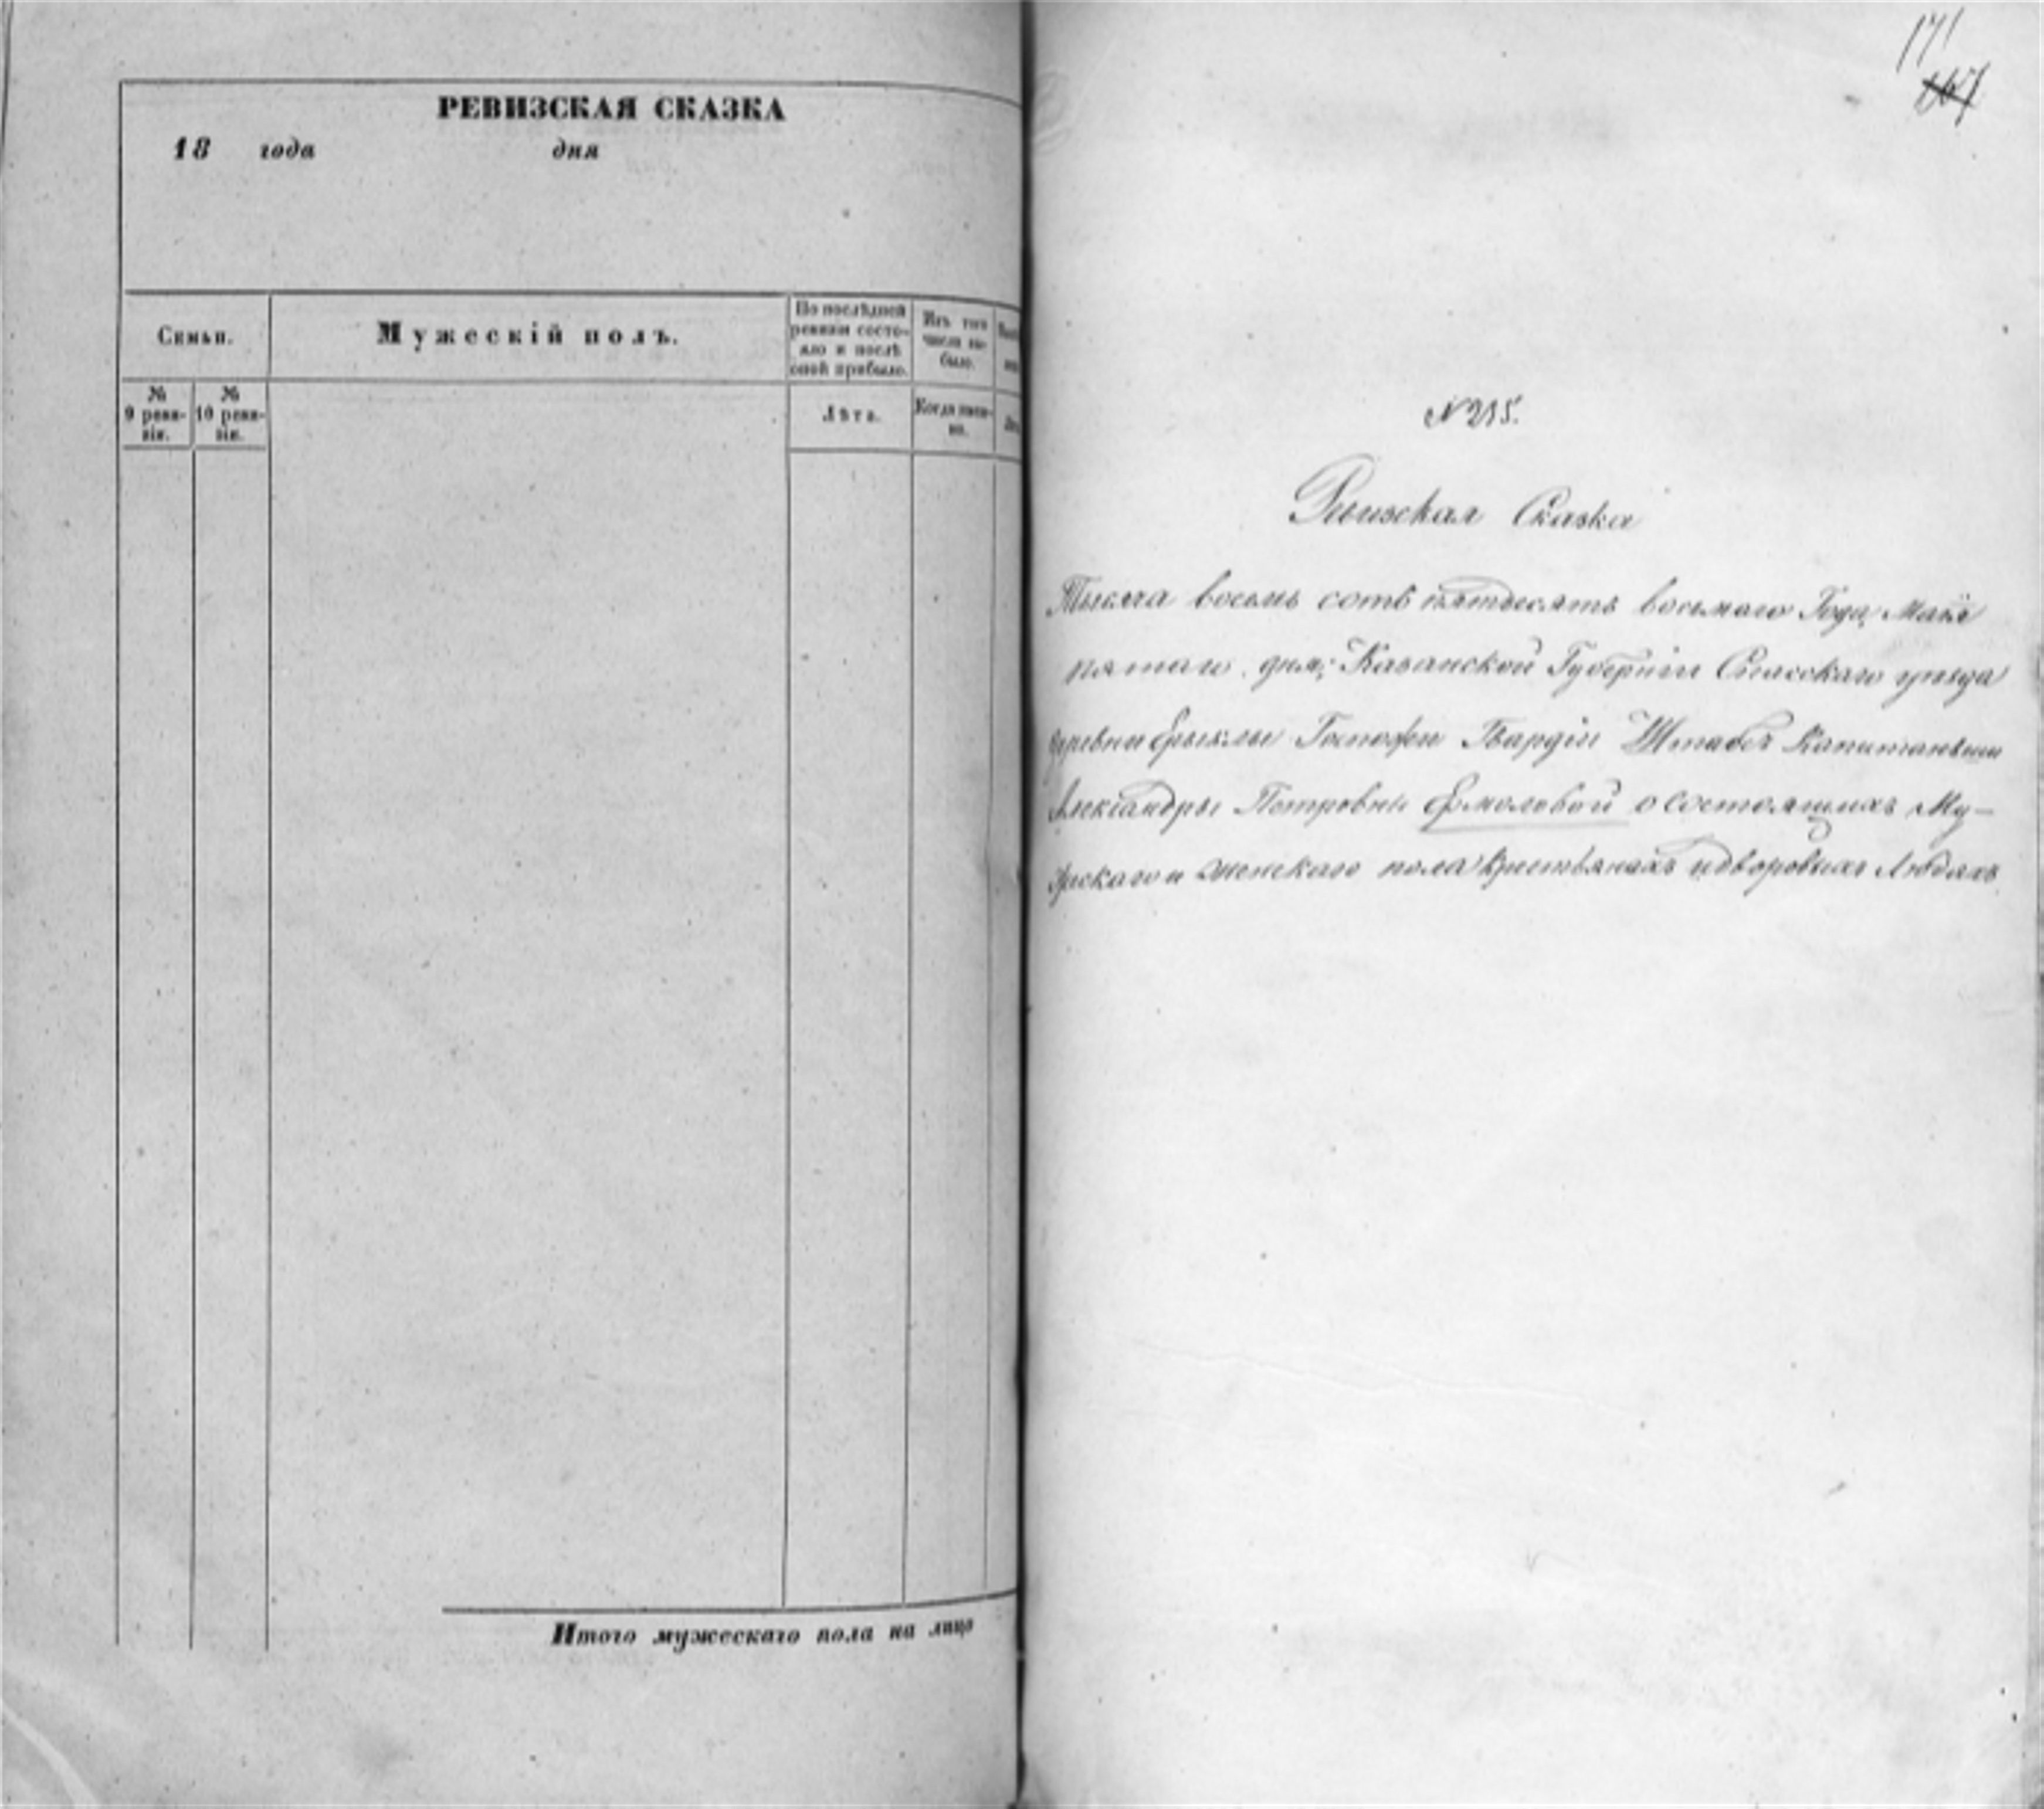 РЕВИЗСКАЯ СКАЗКА
18 года дня
Семьи.
Мужескій полъ.
По послѣдней ревизіи состояло и послѣ оной прибыло.
Изъ того числа выбыло.
№ 9 реви-зіи.
№ 10 реви-зіи.
Лѣта.
Когда имен-но.
Итого мужескаго пола на лицо
171
167
№ 215.
Ревизская Сказка
Тысяча восемь сотъ пятдесятъ восьмаго Года, Маія
пятаго дня; Казанской Губерніи Спасскаго уѣзда
деревни Ерыклы Госпожи Гвардіи Штабсъ Капитанши
Александры Петровны Ермоловой о состоящихъ Му-
жескаго и женскаго пола крестьянахъ и дворовыхъ Людяхъ